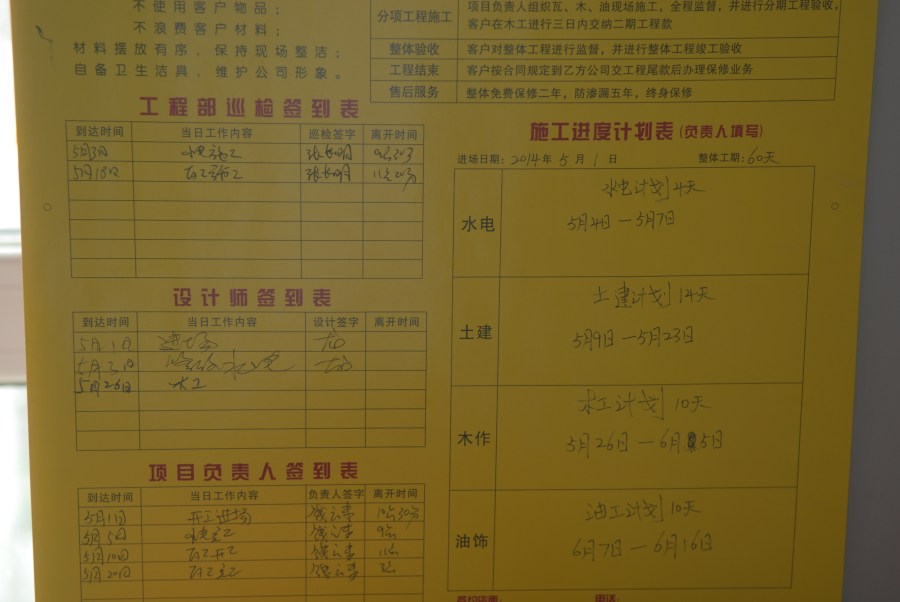 不使用客户物品；
不浪费客户材料；
材料摆放有序，保持现场整洁；
自备卫生洁具，维护公司形象。
分项工程施工 项目负责人组织瓦、木、油现场施工，全程监督，并进行分期工程验收，
客户在木工进行三日内交纳二期工程款
整体验收 客户对整体工程进行监督，并进行整体工程竣工验收
工程结束 客户按合同规定到乙方公司交工程尾款后办理保修业务
售后服务 整体免费保修二年，防渗漏五年，终身保修
工程部巡检签到表
到达时间 当日工作内容 巡检签字 离开时间
5月3日 水电施工
5月18日 瓦工施工
设计师签到表
到达时间 当日工作内容 设计签字 离开时间
5月1日 进场
5月26日 木工
项目负责人签到表
到达时间 当日工作内容 负责人签字 离开时间
5月1日 开工进场
5月5日
5月10日 瓦工开工
5月20日
施工进度计划表(负责人填写)
进场日期：2014年5月1日 整体工期：60天
水电 水电计划4天
5月4日—5月7日
土建 土建计划14天
5月9日—5月23日
木作 木工计划10天
5月26日—6月5日
油饰 油工计划10天
6月7日—6月16日